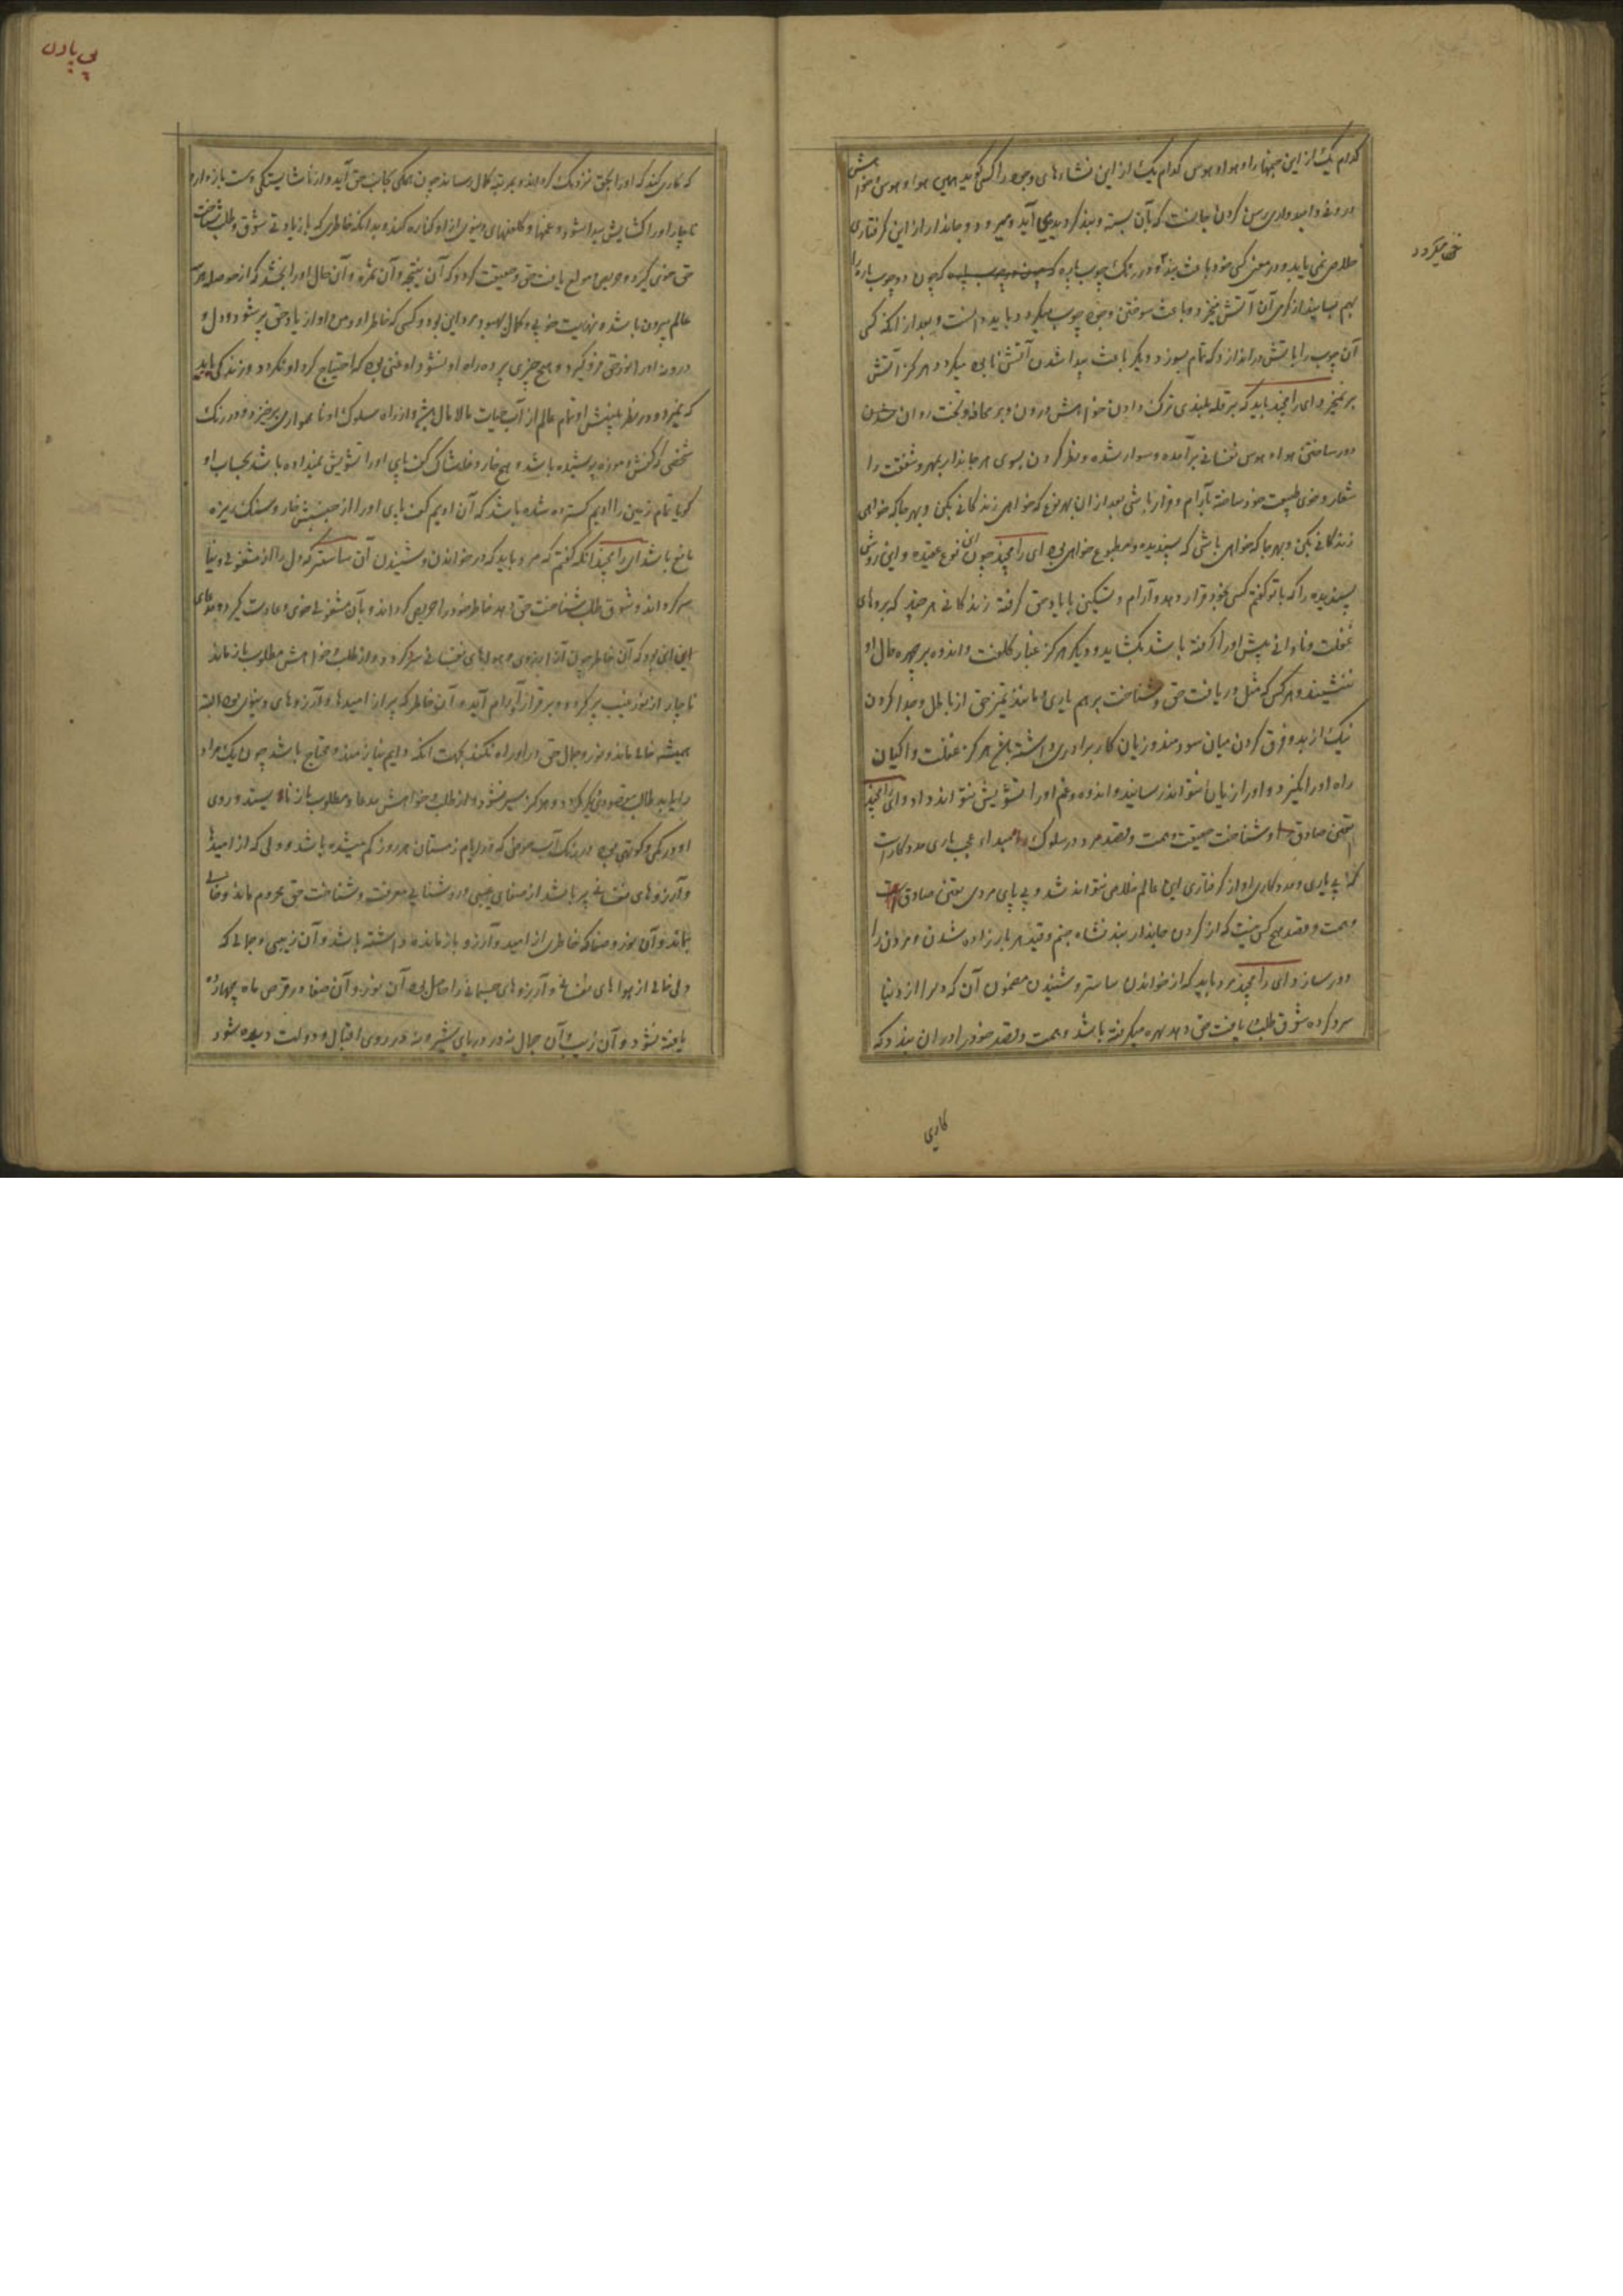 کدام یک از این جهنها را و هوا و هوس کدام یک از این نشاءهای وجود را کسی گوید همین هوا و هوس و خواهش
درونی و امیدواری رسن گردن جانست که بآن بسته و بند گردیده می آید و میرود و جاندار از این گرفتاری
خلاصی نمی یابد و در معنی کسی خود باعث بند او در رنگ چوب پاره که چون دو چوب پاره را
بهم بسایند از گرمی آن آتش خیزد و باعث سوختن وجود چوب میگردد باید دانست و بعد از آنکه کسی
آن چوب را باتش در اندازد که تمام بسوزد دیگر باعث پیدا شدن آتش نابوده میگردد هرگز آتش
برنخیزد ای رامچند باید که بر قله بلندی ترک دادن خواهش درون و بر محافه و تخت روان
دور ساختن هوا و هوس نفسانی برآمده و سوار شده و نظر کردن بسوی هر جاندار بمهر و شفقت را
شعار و خوی طبیعت خود ساخته بآرام و قرار باشی بعد از آن بهر نوع که خواهی زندگانی بکن و بهر جا که خواهی
زندگانی بکن و بهر جا که خواهی باشی که پسندیده و مطبوع خواهی بود ای رامچند چون این نوع عقیده و این روش
پسندیده را که با تو گفتم کسی بخود قرار دهد و آرام و تسکین با یاد حق گرفته زندگانی هر چند که پردهای
غفلت و نادانی پیش او را گرفته باشد بگشاید و دیگر هرگز غبار کلفت و اندوه بر چهره حال او
ننشیند و هر کس که مثل دریافت حق و شناخت برهم یاری و مانند تمیز حق از باطل و جدا کردن
نیک از بد و فرق کردن میان سودمند و زیان کار برادری داشته باشد هرگز غفلت و اکیان
راه او را نگیرد و او را زیان نتواند رسانید و اندوه و غم او را تشویش نتواند داد و ای رامچند
یقین صادق و شناخت حقیقت و همت و قصد مرد در سلوک راه امید او عجب یاری مددگار است
که بی یاری و مددگاری او از گرفتاری این عالم خلاص نتواند شد و بی پای مردی یقین صادق
و همت و قصد هیچ کس نیست که از گردن جاندار بند نشاه جنم و قید هر بار زاده شدن و مردن را
دور سازد ای رامچند مرد باید که از خواندن ساستر و شنیدن مضمون آن که دل را از دنیا
سرد کرده شوق طلب یافت حق دهد بهره میگرفته باشد و همت و قصد خود را در آن بندد که
کاری
می گردد
پی پادن
که کاری کند که او را بحق نزدیک گرداند و بمرتبه کمال رساند چون همگی بجانب حق آید و از ناشایستگی دست باز دارد
ناچار او را گشایش پیدا شود و غمها و کلفتهای دنیوی از او کناره کند و بدانکه خاطری که با زیادتی شوق و طلب شناخت
حق خوی گیرد و حریص و مولع یافت حق و حقیقت گردد که آن نتیجه و آن ثمره و آن حال او را بخشد که از حوصله هر
عالم بیرون باشد و نهایت خوبی و کمال بهبود مرد این بود و کسی که خاطر او و من او از یاد حق پر شود و دل و
درون او را نور حق فرو گیرد و هیچ چیزی پرده راه او نشود و او غنی بود که احتیاج گرد او نگردد و زندگی یابد
که نمیرد و در نظر بینش او تمام عالم از آب حیات مالامال بود و از راه سلوک او ناهمواری برخیزد و در رنگ
شخصی که کفش و موزه پوشیده باشد و هیچ خار و خاشاک کف پای او را تشویش نمیداده باشد بحساب او
گویا تمام زمین را ادیم گسترده شده باشد که آن ادیم کف پای او را از جنبش خار و سنگ ریزه
مانع باشد ای رامچند آنکه گفتم که مرد باید که در خواندن و شنیدن آن ساستر که دل را از مشغولی دنیا
سرد گرداند و شوق طلب شناخت حق دهد خاطر خود را حریص گرداند و بآن مشغولی خوی و عادت گیرد و مدعای
این این بود که آن خاطر چون از آرزوی و هواهای نفسانی سرد گردد و از طلب و خواهش مطلوب باز ماند
ناچار از نور غیب پر گردد و بر قرار آرام آید و آن خاطر که پر از امیدها و آرزوهای دنیوی بود البته
همیشه خالی ماند و نور و جمال حق در او راه نکند بجهت آنکه دایم نیازمند و محتاج باشد چون یک مراد
را بیابد طالب مقصود دیگر گردد و هرگز سیر نشود و از طلب و خواهش مدعا و مطلوب باز نایستد و روی
او در کمی و کوتهی بود در رنگ آب حوض که در ایام زمستان هر روز کم میشده باشد و دلی که از امیدها
و آرزوهای نفسانی پر باشد از صفای غیبی و روشنایی معرفت و شناخت حق محروم ماند و خالی
بماند و آن نور و صفا که خاطری از امید و آرزو باز مانده داشته باشد و آن زیبی و جمالی که
دلی خالی از هواهای نفسانی و آرزوهای جسمانی را حاصل بود آن نور و آن صفا در قرص ماه چهارده
یافته نشود و آن زیب و آن جمال نه در دریای شیر و نه در روی اقبال و دولت دیده شود